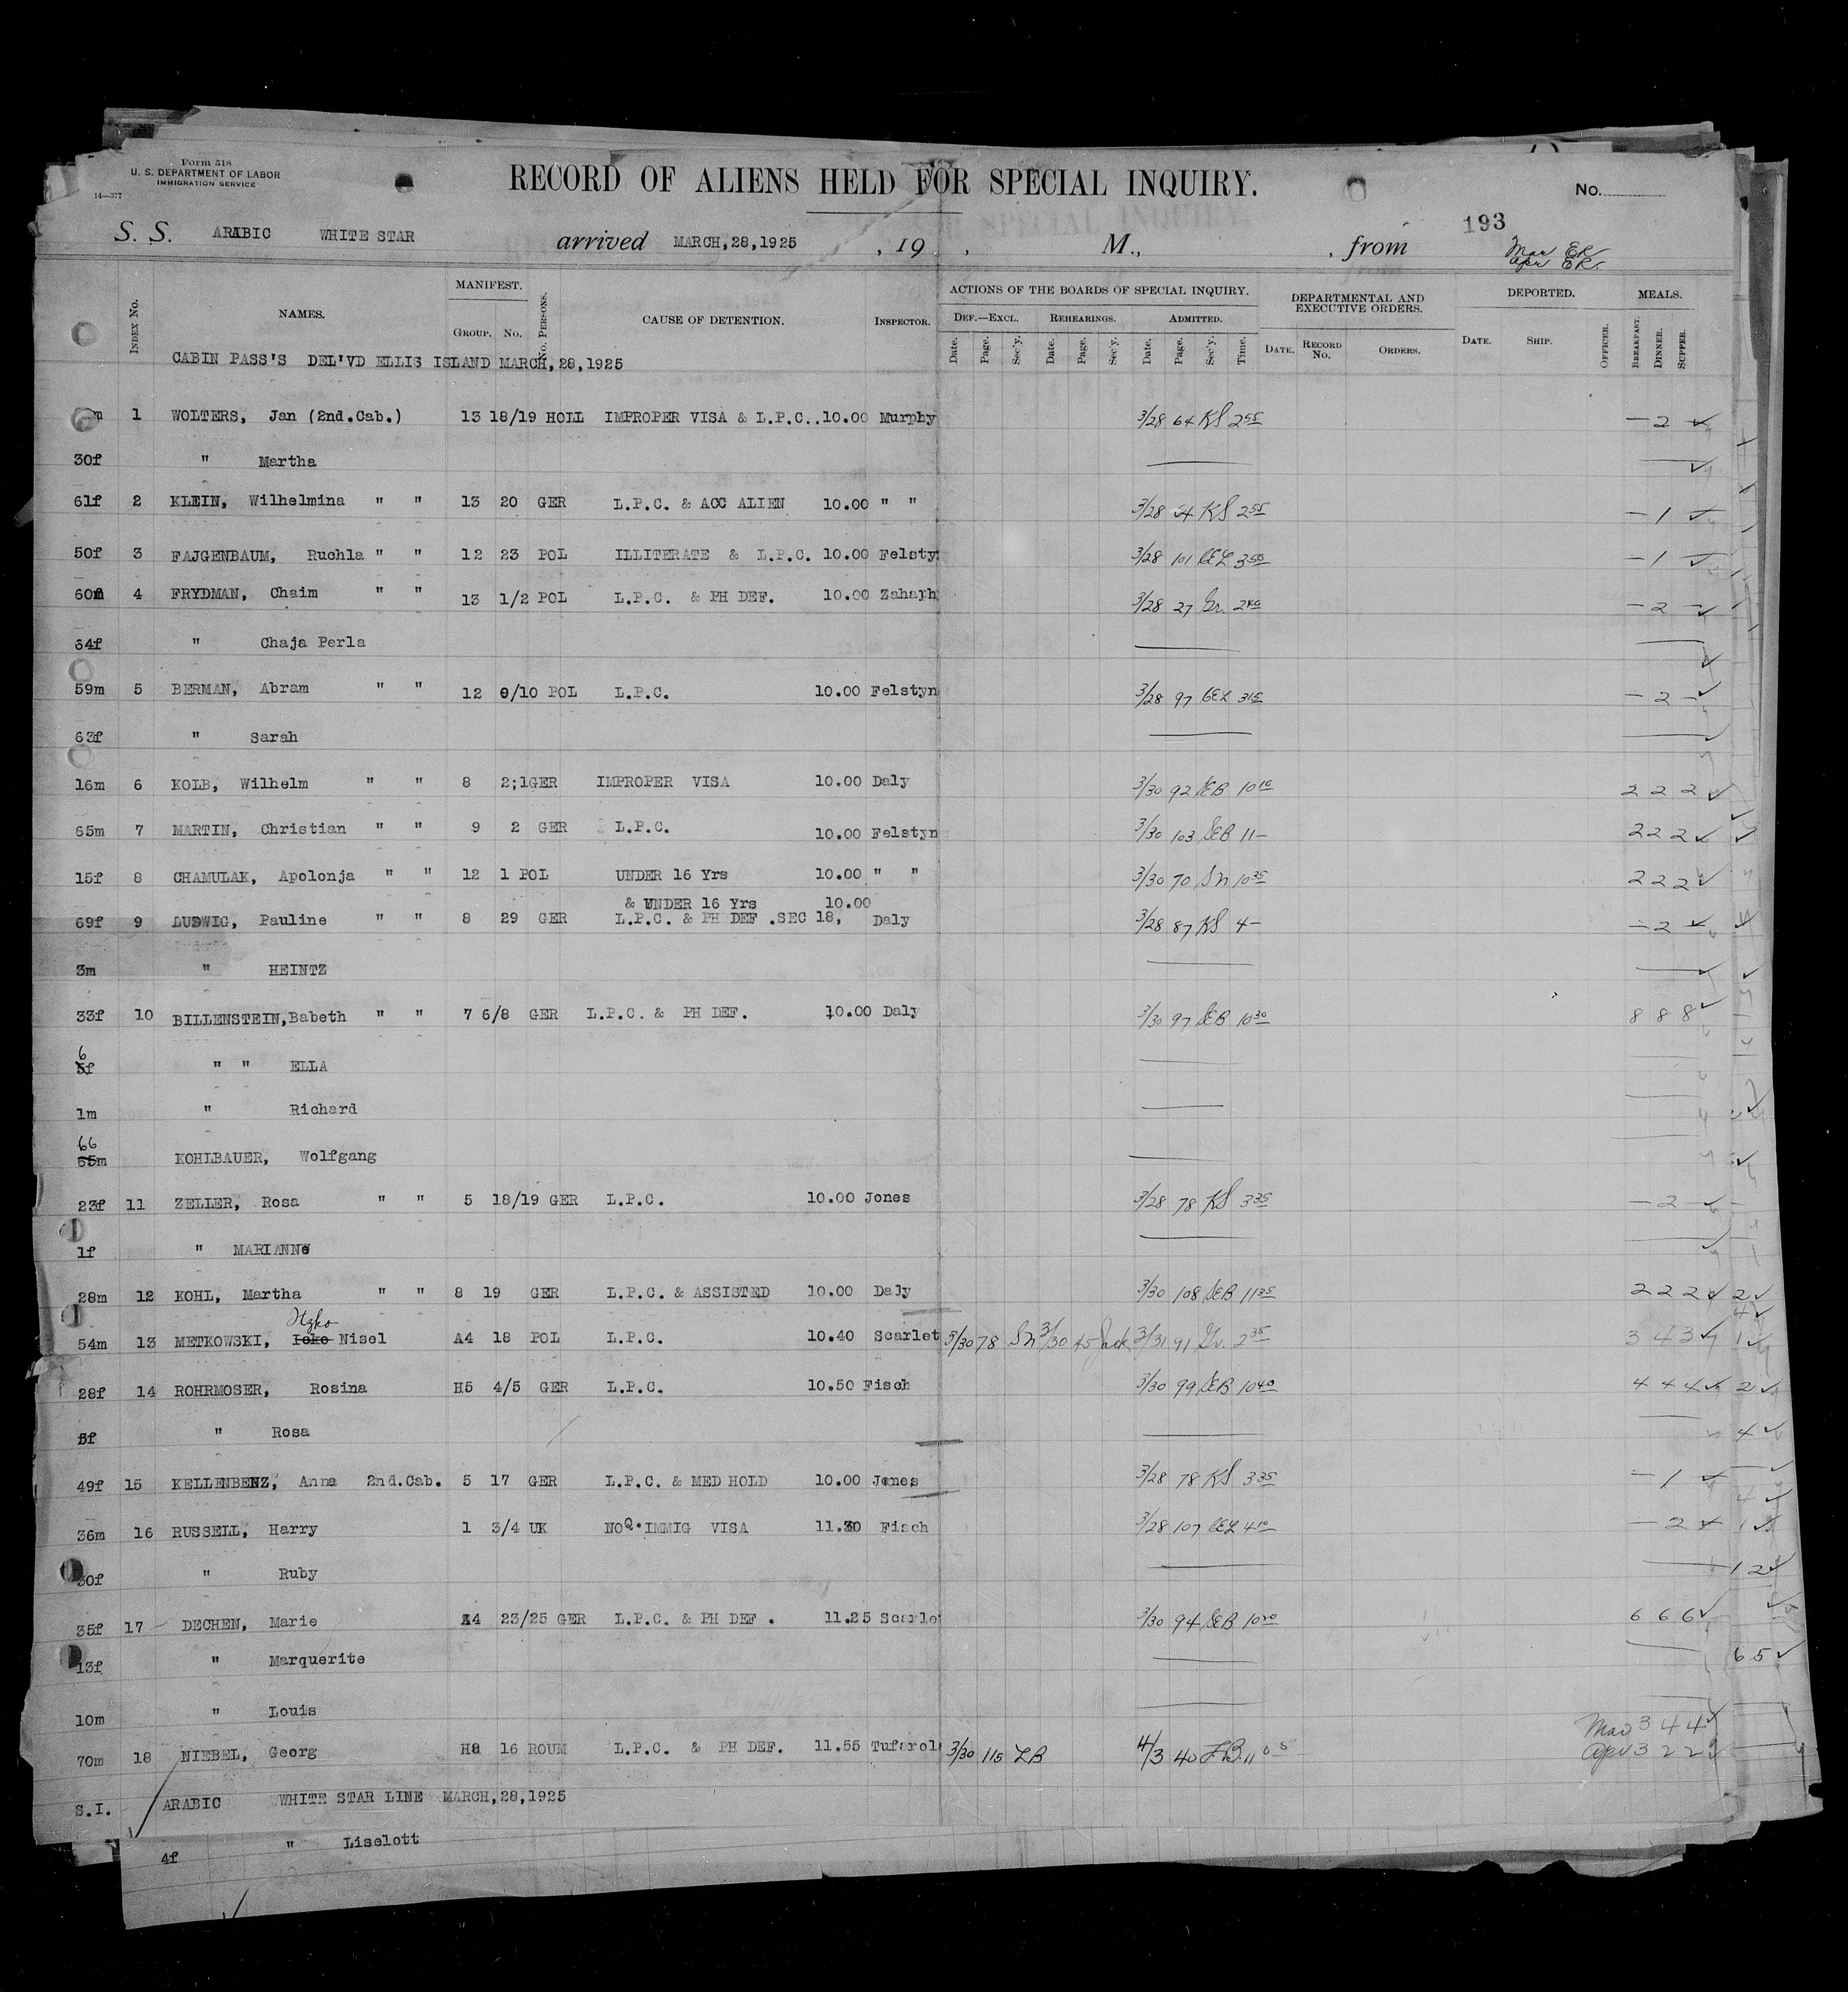 Form 518
U. S. DEPARTMENT OF LABOR
IMMIGRATION SERVICE
14—377
RECORD OF ALIENS HELD FOR SPECIAL INQUIRY.
No.
193
S. S. ARABIC WHITE STAR arrived MARCH,28,1925 , 19 , M., , from
Mar ER
Apr ER.
INDEX No. NAMES. MANIFEST. GROUP. No. No. PERSONS. CAUSE OF DETENTION. INSPECTOR. ACTIONS OF THE BOARDS OF SPECIAL INQUIRY. DEF.—EXCL. REHEARINGS. ADMITTED. DEPARTMENTAL AND EXECUTIVE ORDERS. DEPORTED. MEALS.
Date. Page. Sec'y. Date. Page. Sec'y. Date. Page. Sec'y. Time. DATE. RECORD No. ORDERS. DATE. SHIP. OFFICER. BREAKFAST. DINNER. SUPPER.
CABIN PASS'S DEL'VD ELLIS ISLAND MARCH,28,1925
m 1 WOLTERS, Jan (2nd.Cab.) 13 18/19 HOLL IMPROPER VISA & L.P.C..10.00 Murphy 3/28 64 KS 2 55 — 2 —
30f " Martha
61f 2 KLEIN, Wilhelmina " " 13 20 GER L.P.C. & ACC ALIEN 10.00 " " 3/28 64 KS 2 55 — 1 —
50f 3 FAJGENBAUM, Ruchla " " 12 23 POL ILLITERATE & L.P.C. 10.00 Felsty 3/28 101 CEL 3 50 — 1 —
60m 4 FRYDMAN, Chaim " " 13 1/2 POL L.P.C. & PH DEF. 10.00 Zahaph 3/28 27 Gr. 2 40 — 2 —
64f " Chaja Perla
59m 5 BERMAN, Abram " " 12 9/10 POL L.P.C. 10.00 Felstyn 3/28 97 CEL 3 15 — 2 —
63f " Sarah
16m 6 KOLB, Wilhelm " " 8 2;1GER IMPROPER VISA 10.00 Daly 3/30 92 SEB 10 10 2 2 2
65m 7 MARTIN, Christian " " 9 2 GER L.P.C. 10.00 Felstyn 3/30 103 SEB 11— 2 2 2
15f 8 CHAMULAK, Apolonja " " 12 1 POL UNDER 16 Yrs 10.00 " " 3/30 70 Sn 10 35 2 2 2
& UNDER 16 Yrs 10.00
69f 9 LUDWIG, Pauline " " 8 29 GER L.P.C. & PH DEF .SEC 18, Daly 3/28 87 KS 4— — 2 —
3m " HEINTZ
33f 10 BILLENSTEIN,Babeth " " 7 6/8 GER L.P.C. & PH DEF. 10.00 Daly 3/30 97 SEB 10 30 8 8 8
6
5f " " ELLA
1m " Richard
66
65m KOHLBAUER, Wolfgang
23f 11 ZELLER, Rosa " " 5 18/19 GER L.P.C. 10.00 Jones 3/28 78 KS 3 35 — 2 —
1f " MARIANNe
28m 12 KOHL, Martha " " 8 19 GER L.P.C. & ASSISTED 10.00 Daly 3/30 108 SEB 11 35 2 2 2 2
Itzko
54m 13 METKOWSKI, Icko Nisel A4 18 POL L.P.C. 10.40 Scarlet 3/30 78 Sn 3/30 45 Jack 3/31 91 Gr. 2 35 3 4 3 1
28f 14 ROHRMOSER, Rosina H5 4/5 GER L.P.C. 10.50 Fisch 3/30 99 SEB 10 40 4 4 4 2
5f " Rosa 4
49f 15 KELLENBENZ, Anna 2nd.Cab. 5 17 GER L.P.C. & MED HOLD 10.00 Jones 3/28 78 KS 3 35 — 1 —
36m 16 RUSSELL, Harry 1 3/4 UK NOQ.IMMIG VISA 11.30 Fisch 3/28 107 CEL 4 10 — 2 —
30f " Ruby 12
35f 17 DECHEN, Marie A4 23/25 GER L.P.C. & PH DEF . 11.25 Scarle 3/30 94 SEB 10 20 6 6 6
13f " Marquerite 65
10m " Louis
70m 18 NIEBEL, Georg H8 16 ROUM L.P.C. & PH DEF. 11.55 Tufarol 3/30 115 LB 4/3 40 LB. 11 05 Mar 3 4 4
Apr 3 2 2
S.I. ARABIC WHITE STAR LINE MARCH,28,1925
4f " Liselott